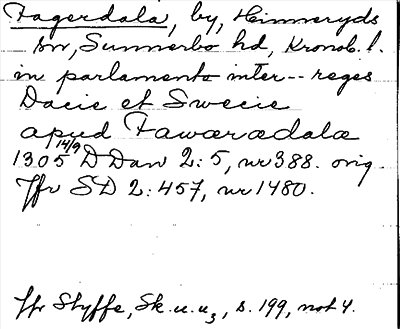 Fagerdala, by, Hinneryds
sn, Sunnerbo hd, Kronob. l.
in parlamento inter -- reges
Dacie et Swecie
apud Fawæradalæ
1305 14/9 DDan 2:5, nr 388. orig.
Jfr SD 2:457, nr 1480.
Jfr Styffe, Sk.u.u3, s. 199, not 4.